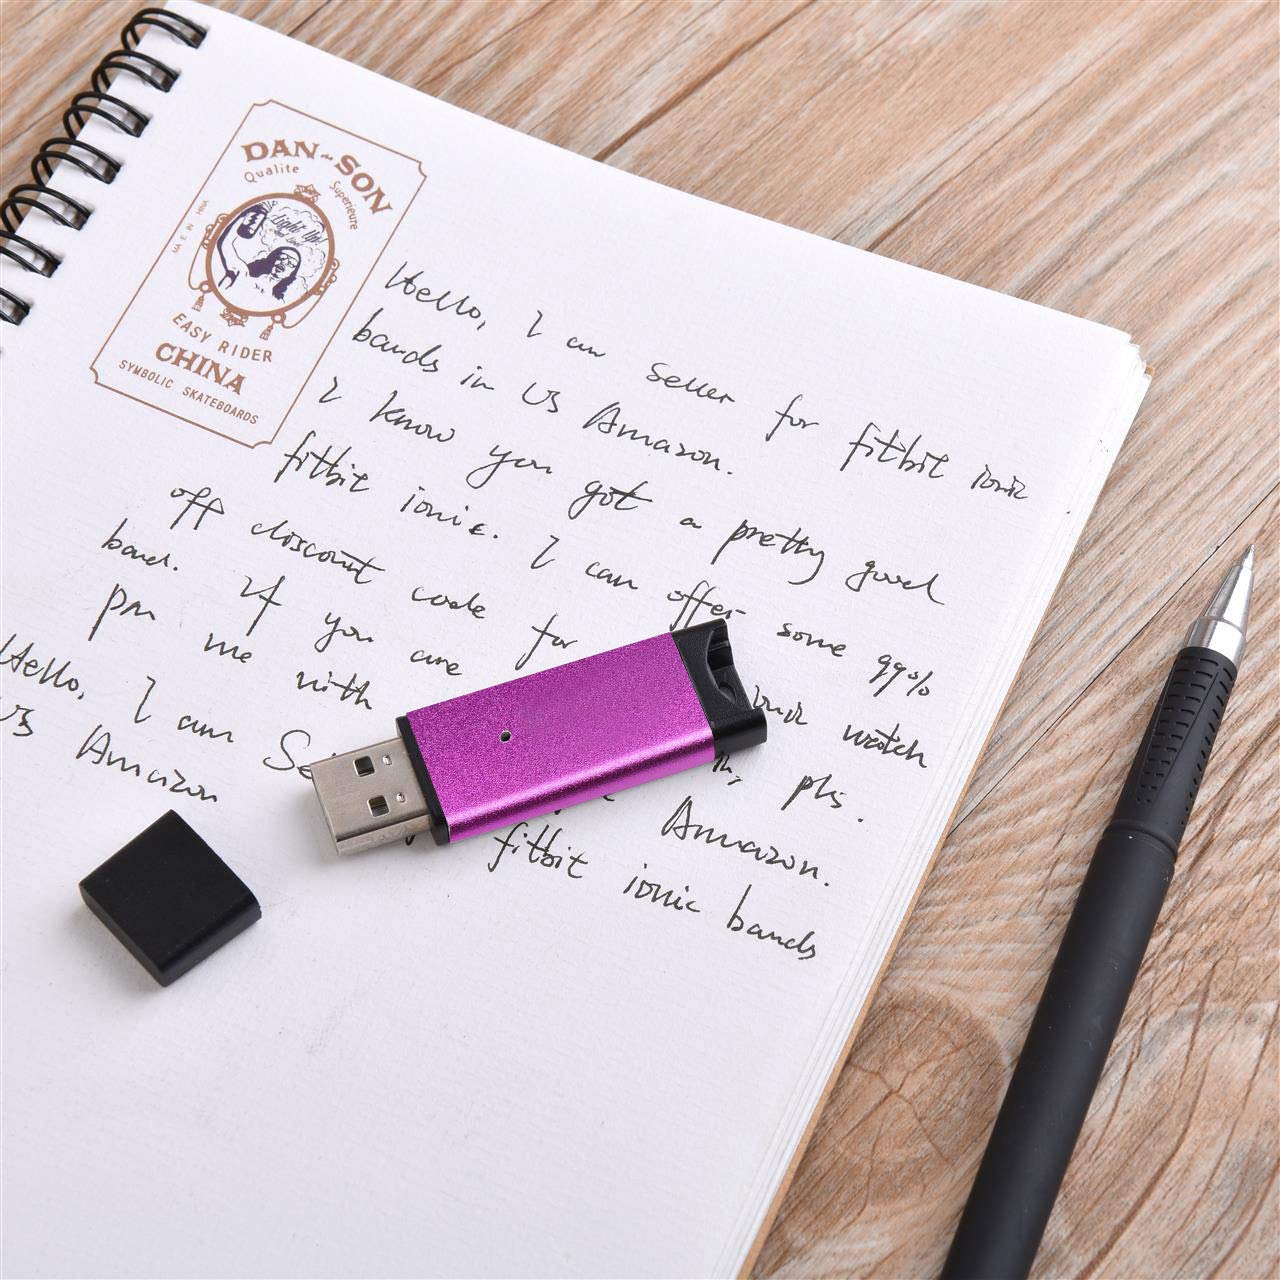 DAN-SON
Qualite Superieure
Light Up!
EASY RIDER
CHINA
SYMBOLIC SKATEBOARDS
Hello, I am seller for fitbit ionic
bands in US Amazon.
I know you got a pretty good
fitbit ionic. I can offer some 99%
off discount code for ionic watch
band. If you are
pm me with pls.
Hello, I am Amazon.
US Amazon fitbit ionic bands